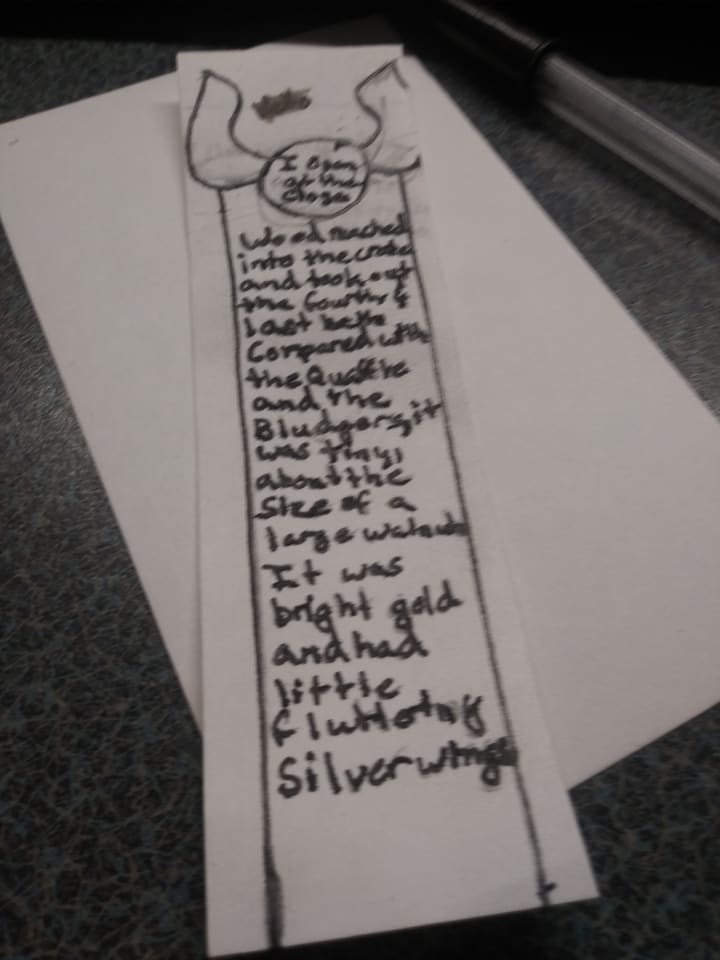 I open
at the
close
Wood reached
into the crate
and took out
the fourth &
last ball.
Compared with
the Quaffle
and the
Bludgers, it
was tiny,
about the
size of a
large walnut.
It was
bright gold
and had
little
fluttering
silver wings